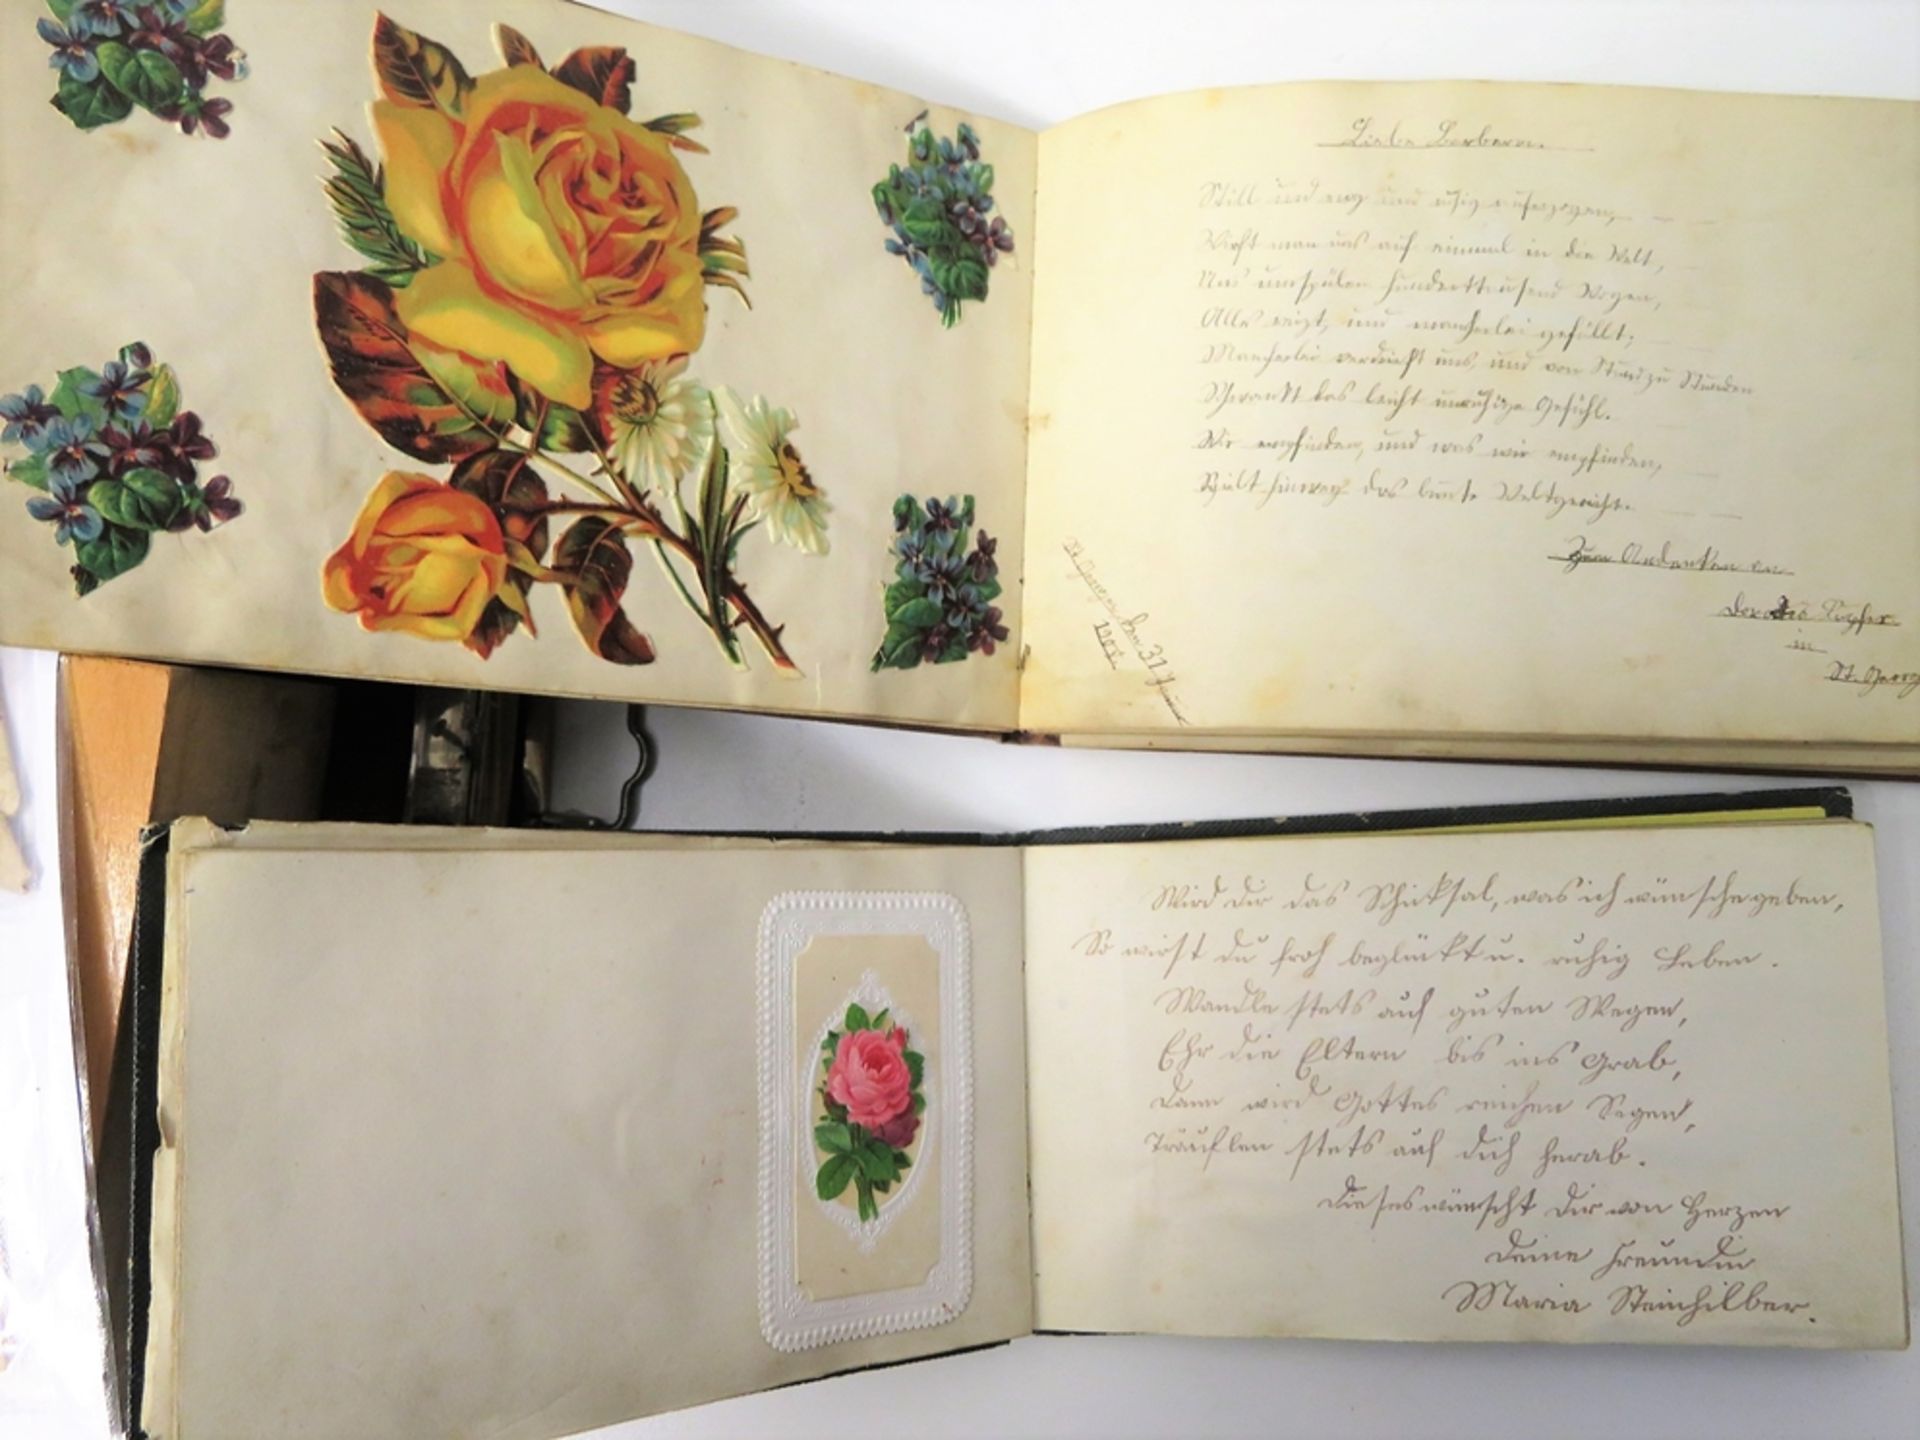 Liebe Barbara.
Still und eng und ruhig auferzogen,
Wirft man uns auf einmal in die Welt,
Uns umspülen hunderttausend Wogen,
Alles reizt, und mancherlei gefällt;
Mancherlei verdrießt uns, und von Stund zu Stunden
Schwankt das leicht unruhige Gefühl.
Wir empfinden, und was wir empfinden,
Spült hinweg das bunte Weltgewühl.
Zum Andenken an
in
St. Georg
St. Georgen den 31
Wird dir das Schicksal, was ich wünsche geben,
So wirst du froh beglückt u. ruhig Leben.
Wandle stets auf guten Wegen,
Ehr die Eltern bis ins Grab,
Dann wird Gottes reichen Segen,
Träuflen stets auf dich herab.
Dieses wünscht dir von Herzen
Deine Freundin
Maria Steinhilber.